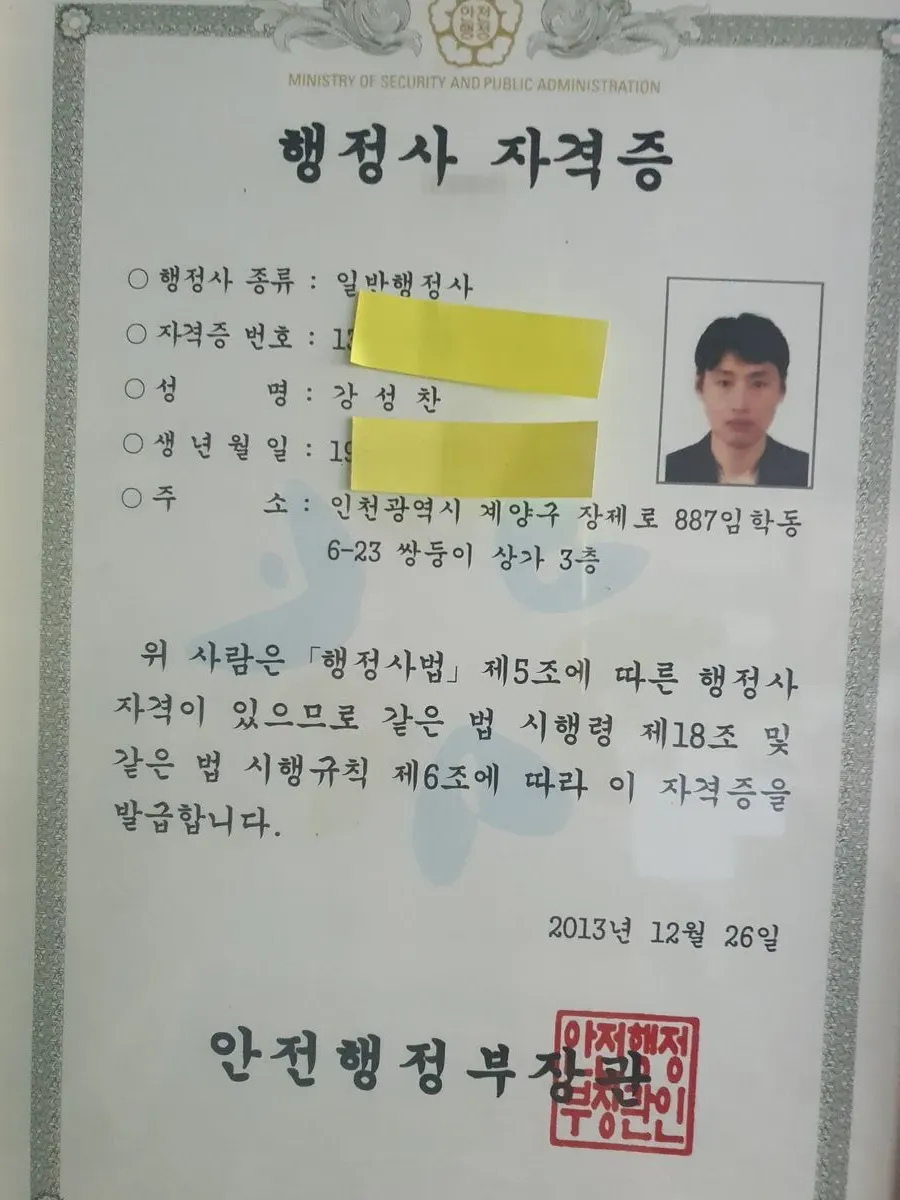 안전행정
MINISTRY OF SECURITY AND PUBLIC ADMINISTRATION
행정사 자격증
○ 행정사 종류 : 일반행정사
○ 자격증 번호 : 13
○ 성 명 : 강 성 찬
○ 생 년 월 일 : 19
○ 주 소 : 인천광역시 계양구 장제로 887임학동
6-23 쌍둥이 상가 3층
위 사람은 「행정사법」 제5조에 따른 행정사
자격이 있으므로 같은 법 시행령 제18조 및
같은 법 시행규칙 제6조에 따라 이 자격증을
발급합니다.
2013년 12월 26일
안전행정부장관
안전행정
부장관인